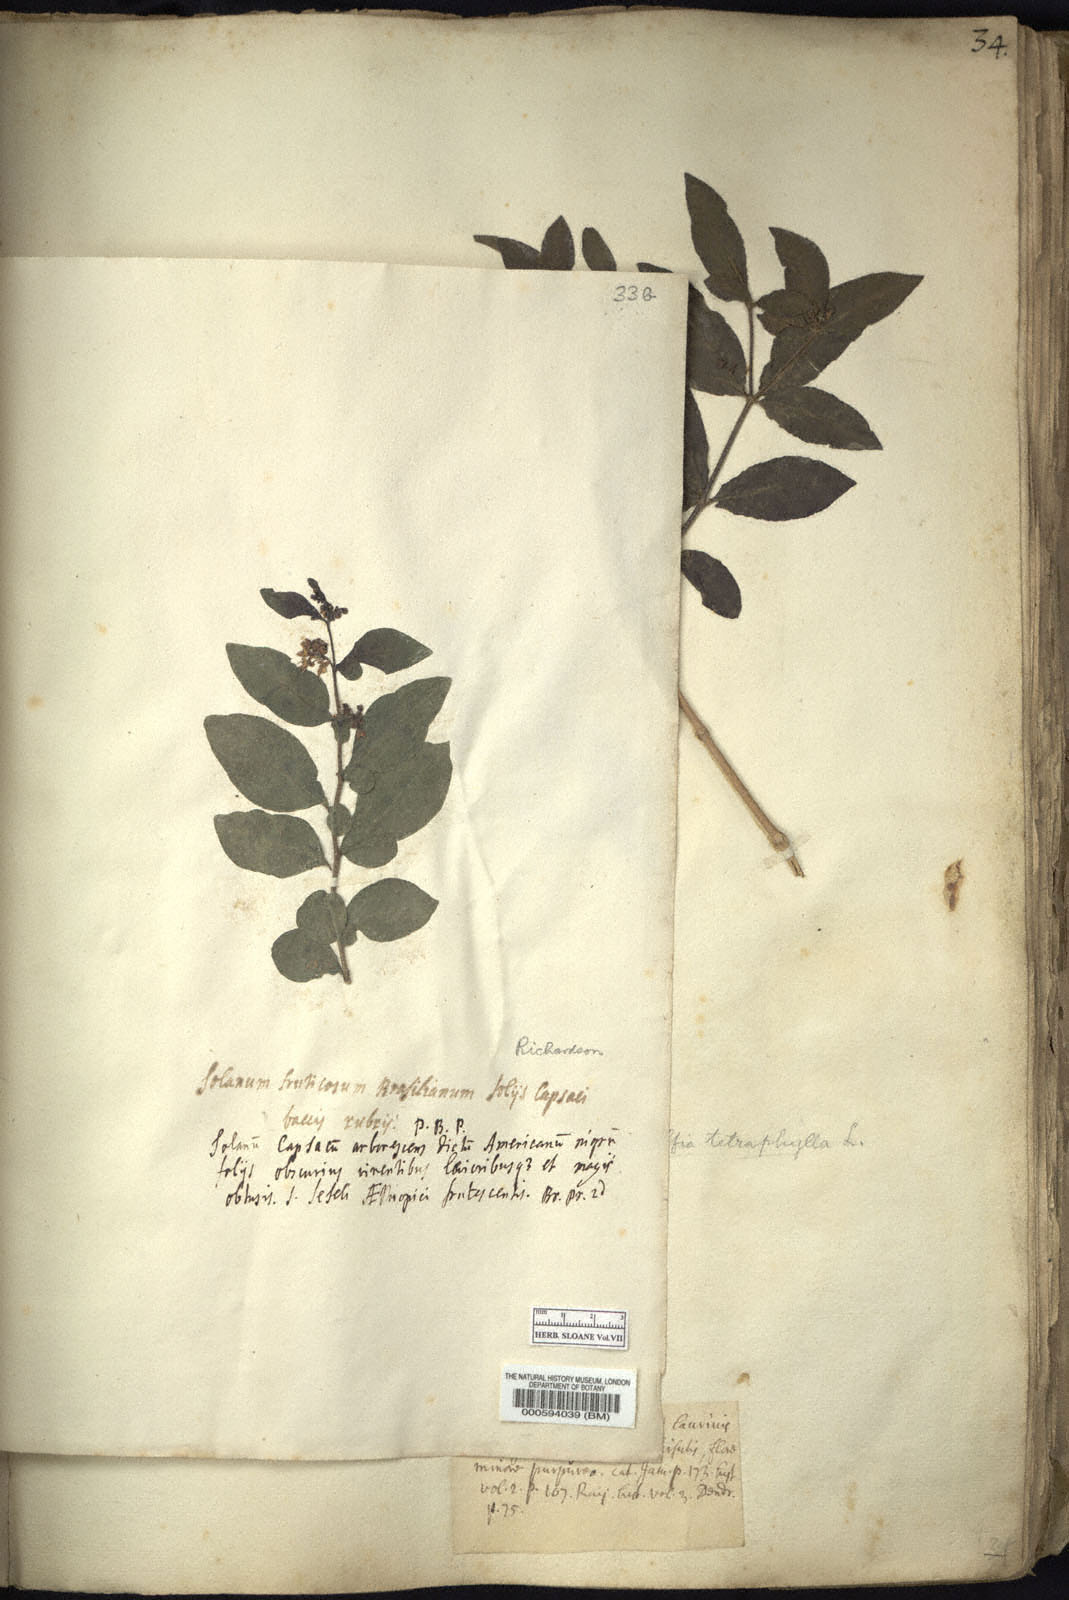 34.
33B
Richardson
Solanum fruticosum Brasilianum folijs Capsaci
baccis rubris. P. B. P.
Solanū Capsacū arborescens dictū Americanū nigrū
folijs obscurius virentibus et magis
obtusis. s. Seseli Æthiopici frutescentis. Br. pr. 2d
fia tetraphylla L.
mm 1 2 3
HERB. SLOANE Vol.VII
THE NATURAL HISTORY MUSEUM, LONDON
DEPARTMENT OF BOTANY
000594039 (BM)
laurinis
flore
purpureo. cat. Jam. p. 173. hist
vol. 2. p. 107. Raij. hist. vol. 3. Dendr.
p. 75.